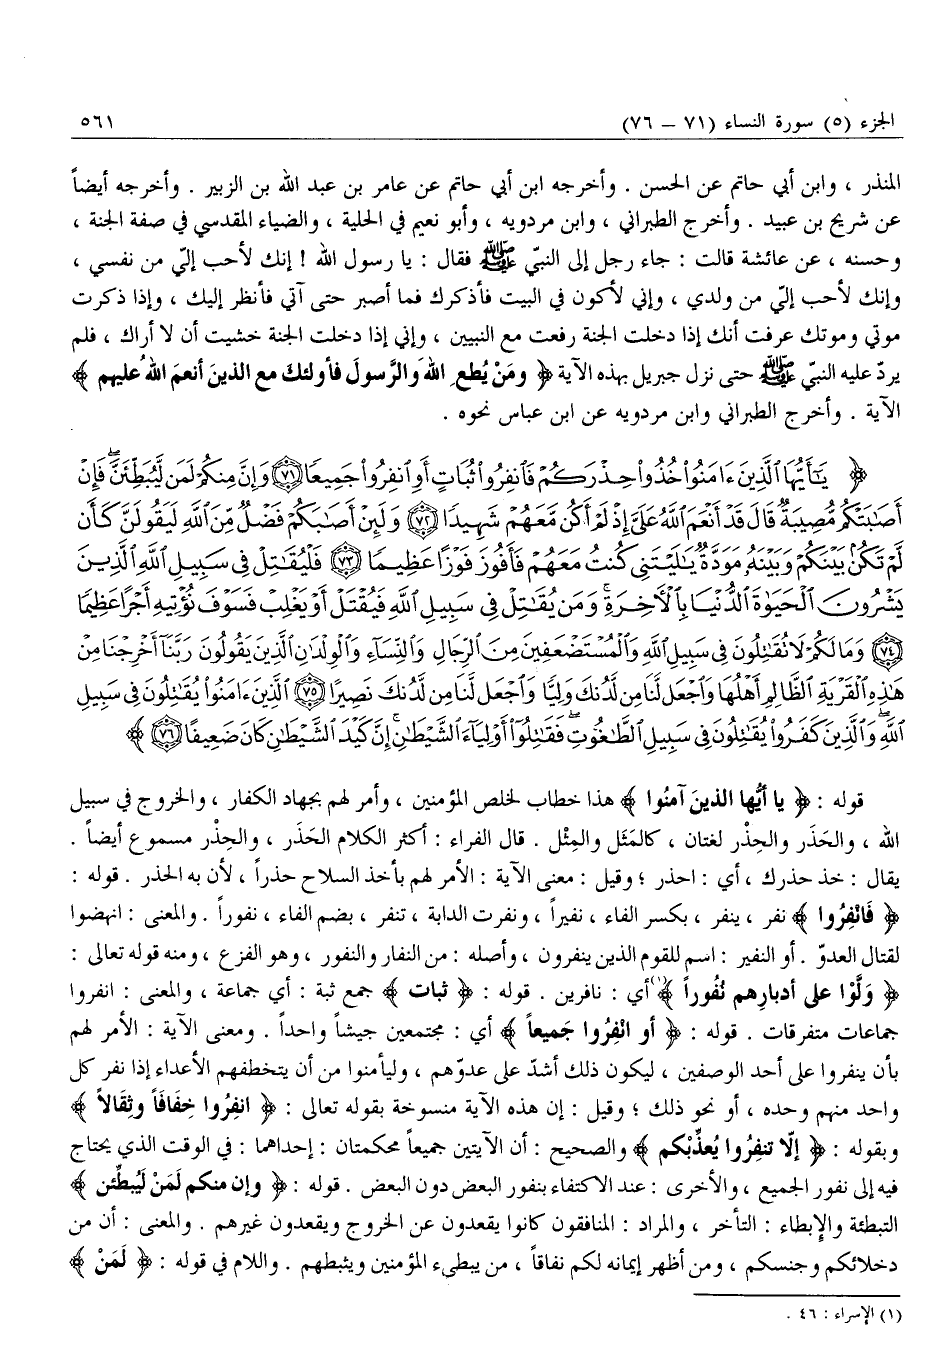 الجزء (٥) سورة النساء (٧١ – ٧٦) ٥٦١
المنذر ، وابن أبي حاتم عن الحسن . وأخرجه ابن أبي حاتم عن عامر بن عبد الله بن الزبير . وأخرجه أيضاً
عن شريح بن عبيد . وأخرج الطبراني ، وابن مردويه ، وأبو نعيم في الحلية ، والضياء المقدسي في صفة الجنة ،
وحسنه ، عن عائشة قالت : جاء رجل إلى النبيّ ﷺ فقال : يا رسول الله ! إنك لأحب إليّ من نفسي ،
وإنك لأحب إليّ من ولدي ، وإني لأكون في البيت فأذكرك فما أصبر حتى آتي فأنظر إليك ، وإذا ذكرت
موتي وموتك عرفت أنك إذا دخلت الجنة رفعت مع النبيين ، وإني إذا دخلت الجنة خشيت أن لا أراك ، فلم
يردّ عليه النبيّ ﷺ حتى نزل جبريل بهذه الآية ﴿ ومَنْ يُطعِ اللهَ والرَّسولَ فأولئكَ مع الذينَ أنعمَ اللهُ عليهم ﴾
الآية . وأخرج الطبراني وابن مردويه عن ابن عباس نحوه .
﴿ يَٰٓأَيُّهَا ٱلَّذِينَ ءَامَنُوا۟ خُذُوا۟ حِذْرَكُمْ فَٱنفِرُوا۟ ثُبَاتٍ أَوِ ٱنفِرُوا۟ جَمِيعًا ۝٧١ وَإِنَّ مِنكُمْ لَمَن لَّيُبَطِّئَنَّ ۖ فَإِنْ
أَصَٰبَتْكُم مُّصِيبَةٌ قَالَ قَدْ أَنْعَمَ ٱللَّهُ عَلَىَّ إِذْ لَمْ أَكُن مَّعَهُمْ شَهِيدًا ۝٧٢ وَلَئِنْ أَصَٰبَكُمْ فَضْلٌ مِّنَ ٱللَّهِ لَيَقُولَنَّ كَأَن
لَّمْ تَكُنۢ بَيْنَكُمْ وَبَيْنَهُۥ مَوَدَّةٌ يَٰلَيْتَنِى كُنتُ مَعَهُمْ فَأَفُوزَ فَوْزًا عَظِيمًا ۝٧٣ فَلْيُقَٰتِلْ فِى سَبِيلِ ٱللَّهِ ٱلَّذِينَ
يَشْرُونَ ٱلْحَيَوٰةَ ٱلدُّنْيَا بِٱلْءَاخِرَةِ ۚ وَمَن يُقَٰتِلْ فِى سَبِيلِ ٱللَّهِ فَيُقْتَلْ أَوْ يَغْلِبْ فَسَوْفَ نُؤْتِيهِ أَجْرًا عَظِيمًا
۝٧٤ وَمَا لَكُمْ لَا تُقَٰتِلُونَ فِى سَبِيلِ ٱللَّهِ وَٱلْمُسْتَضْعَفِينَ مِنَ ٱلرِّجَالِ وَٱلنِّسَآءِ وَٱلْوِلْدَٰنِ ٱلَّذِينَ يَقُولُونَ رَبَّنَآ أَخْرِجْنَا مِنْ
هَٰذِهِ ٱلْقَرْيَةِ ٱلظَّالِمِ أَهْلُهَا وَٱجْعَل لَّنَا مِن لَّدُنكَ وَلِيًّا وَٱجْعَل لَّنَا مِن لَّدُنكَ نَصِيرًا ۝٧٥ ٱلَّذِينَ ءَامَنُوا۟ يُقَٰتِلُونَ فِى سَبِيلِ
ٱللَّهِ ۖ وَٱلَّذِينَ كَفَرُوا۟ يُقَٰتِلُونَ فِى سَبِيلِ ٱلطَّٰغُوتِ فَقَٰتِلُوٓا۟ أَوْلِيَآءَ ٱلشَّيْطَٰنِ ۖ إِنَّ كَيْدَ ٱلشَّيْطَٰنِ كَانَ ضَعِيفًا ۝٧٦ ﴾
قوله : ﴿ يا أيُّها الذينَ آمنُوا ﴾ هذا خطاب لخلص المؤمنين ، وأمر لهم بجهاد الكفار ، والخروج في سبيل
الله ، والحَذَر والحِذْر لغتان ، كالمَثَل والمِثْل . قال الفراء : أكثر الكلام الحَذَر ، والحِذْر مسموع أيضاً .
يقال : خذ حذرك ، أي : احذر ؛ وقيل : معنى الآية : الأمر لهم بأخذ السلاح حذراً ، لأن به الحذر . قوله :
﴿ فَانْفِرُوا ﴾ نفر ، ينفر ، بكسر الفاء ، نفيراً ، ونفرت الدابة ، تنفر ، بضم الفاء ، نفوراً . والمعنى : انهضوا
لقتال العدوّ . أو النفير : اسم للقوم الذين ينفرون ، وأصله : من النفار والنفور ، وهو الفزع ، ومنه قوله تعالى :
﴿ وَلَّوْا على أدبارِهم نُفُوراً ﴾(١) أي : نافرين . قوله : ﴿ ثبات ﴾ جمع ثبة : أي جماعة ، والمعنى : انفروا
جماعات متفرقات . قوله : ﴿ أو انْفِرُوا جَميعاً ﴾ أي : مجتمعين جيشاً واحداً . ومعنى الآية : الأمر لهم
بأن ينفروا على أحد الوصفين ، ليكون ذلك أشدّ على عدوّهم ، وليأمنوا من أن يتخطفهم الأعداء إذا نفر كل
واحد منهم وحده ، أو نحو ذلك ؛ وقيل : إن هذه الآية منسوخة بقوله تعالى : ﴿ انفِرُوا خِفَافاً وثِقَالاً ﴾
وبقوله : ﴿ إلّا تنفِرُوا يُعذِّبْكم ﴾ والصحيح : أن الآيتين جميعاً محكمتان : إحداهما : في الوقت الذي يحتاج
فيه إلى نفور الجميع ، والأخرى : عند الاكتفاء بنفور البعض دون البعض . قوله : ﴿ وإن منكم لَمَنْ لَيُبطِّئن ﴾
التبطئة والإبطاء : التأخر ، والمراد : المنافقون كانوا يقعدون عن الخروج ويقعدون غيرهم . والمعنى : أن من
دخلائكم وجنسكم ، ومن أظهر إيمانه لكم نفاقاً ، من يبطىء المؤمنين ويثبطهم . واللام في قوله : ﴿ لَمَنْ ﴾
(١) الإسراء : ٤٦ .